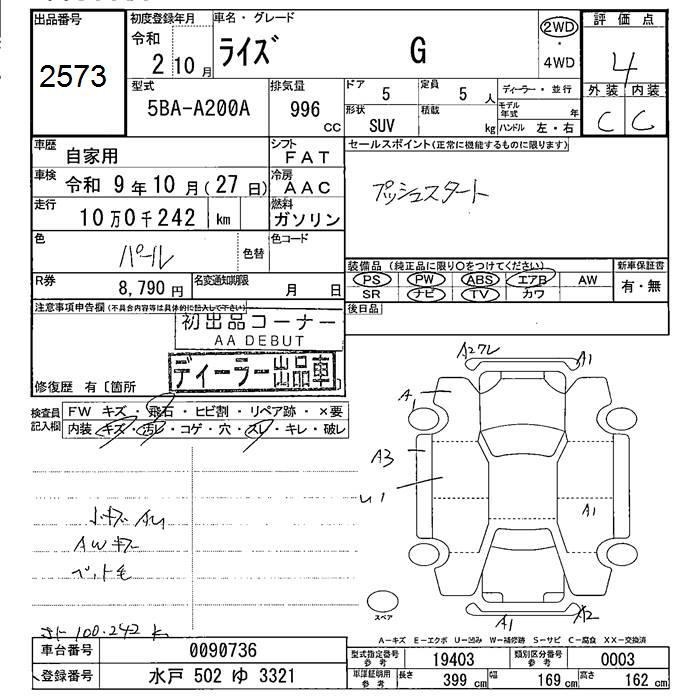 出品番号 初度登録年月 車名・グレード 評価点
2573 令和 2年 10月 ライズ G 2WD・4WD 4
外装 内装
C C
型式 5BA-A200A 排気量 996 CC ドア 5 定員 5 人 ディーラー・並行
形状 SUV 積載 kg モデル年式 年 ハンドル 左・右
車歴 自家用 シフト FAT セールスポイント(正常に機能するものに限ります)
車検 令和 9年 10月(27日) 冷房 AAC プッシュスタート
走行 10万0千242 km 燃料 ガソリン
色 パール 色替 色コード
装備品(純正品に限り○をつけてください) 新車保証書
R券 8,790円 名変通知期限 月 日 PS PW ABS エアB AW 有・無
SR ナビ TV カワ
注意事項申告欄(不具合内容等は具体的に記入して下さい) 後日品
初出品コーナー
AA DEBUT
ディーラー出品車
修復歴 有〔箇所
検査員記入欄 FW キズ・飛石・ヒビ割・リペア跡・×要
内装・キズ・汚レ・コゲ・穴・スレ・キレ・破レ
A2ワレ A1
A1
A3
U1
A1
小キズ AU
AWキズ
ペット毛
スペア
A1 A2
メーター 100.242 k
A-キズ E-エクボ U-凹み W-補修跡 S-サビ C-腐食 XX-交換済
車台番号 0090736 型式指定番号 参考 19403 類別区分番号 参考 0003
登録番号 水戸 502 ゆ 3321 車庫証明用 参考 長さ 399 cm 幅 169 cm 高さ 162 cm